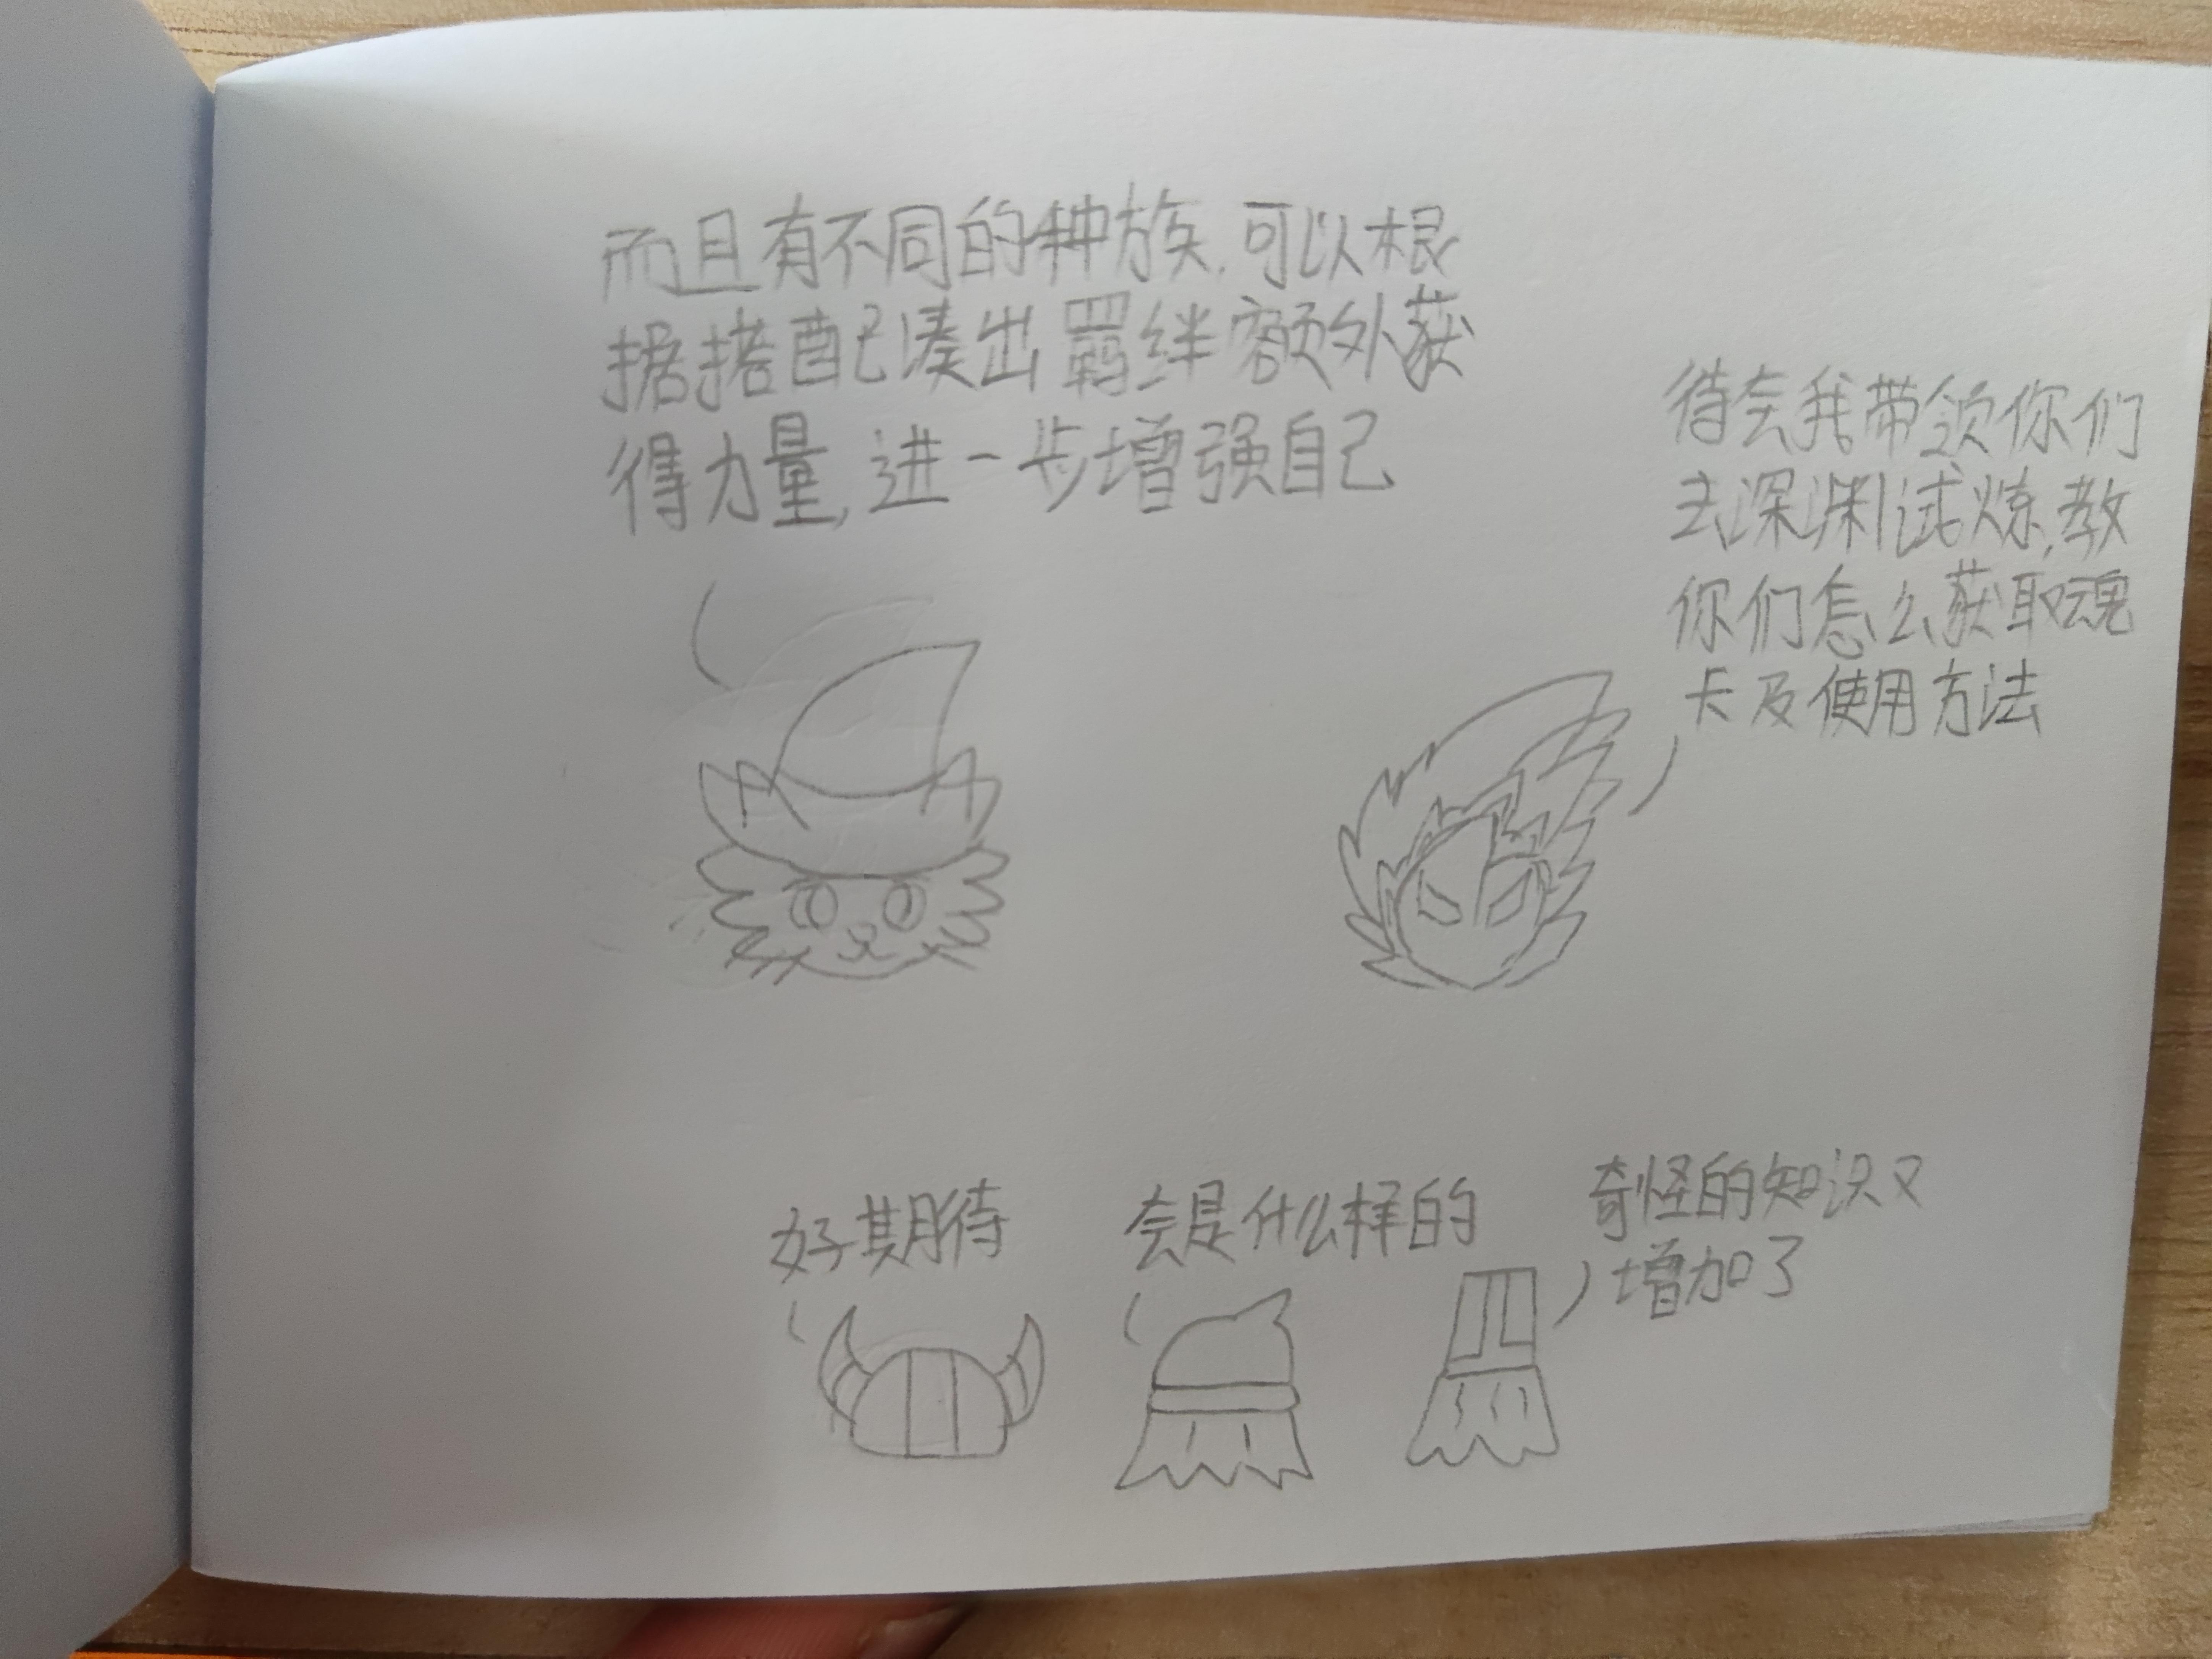 而且有不同的种族,可以根
据搭配凑出羁绊额外获
得力量,进一步增强自己
待会我带领你们
去深渊试炼,教
你们怎么获取魂
卡及使用方法
好期待
会是什么样的
奇怪的知识又
增加了